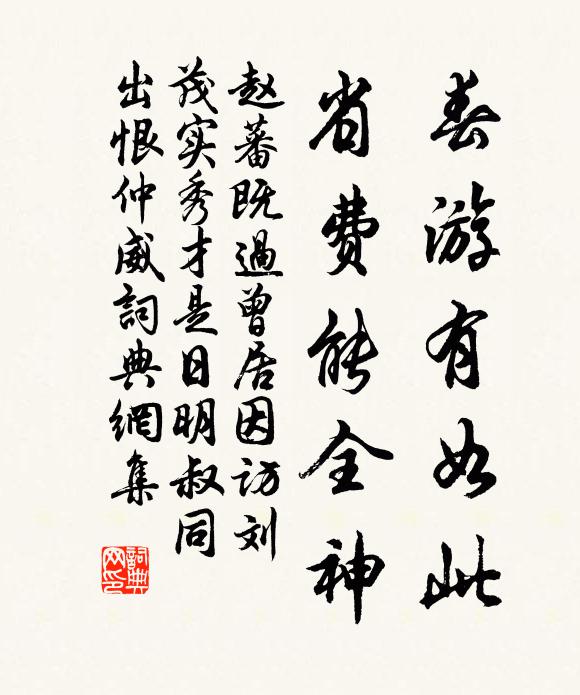 春游有如此
省费能全神
赵蕃既過曾居因访刘
茂实秀才是日明叔同
出恨仲威詞典網集
詞典网印